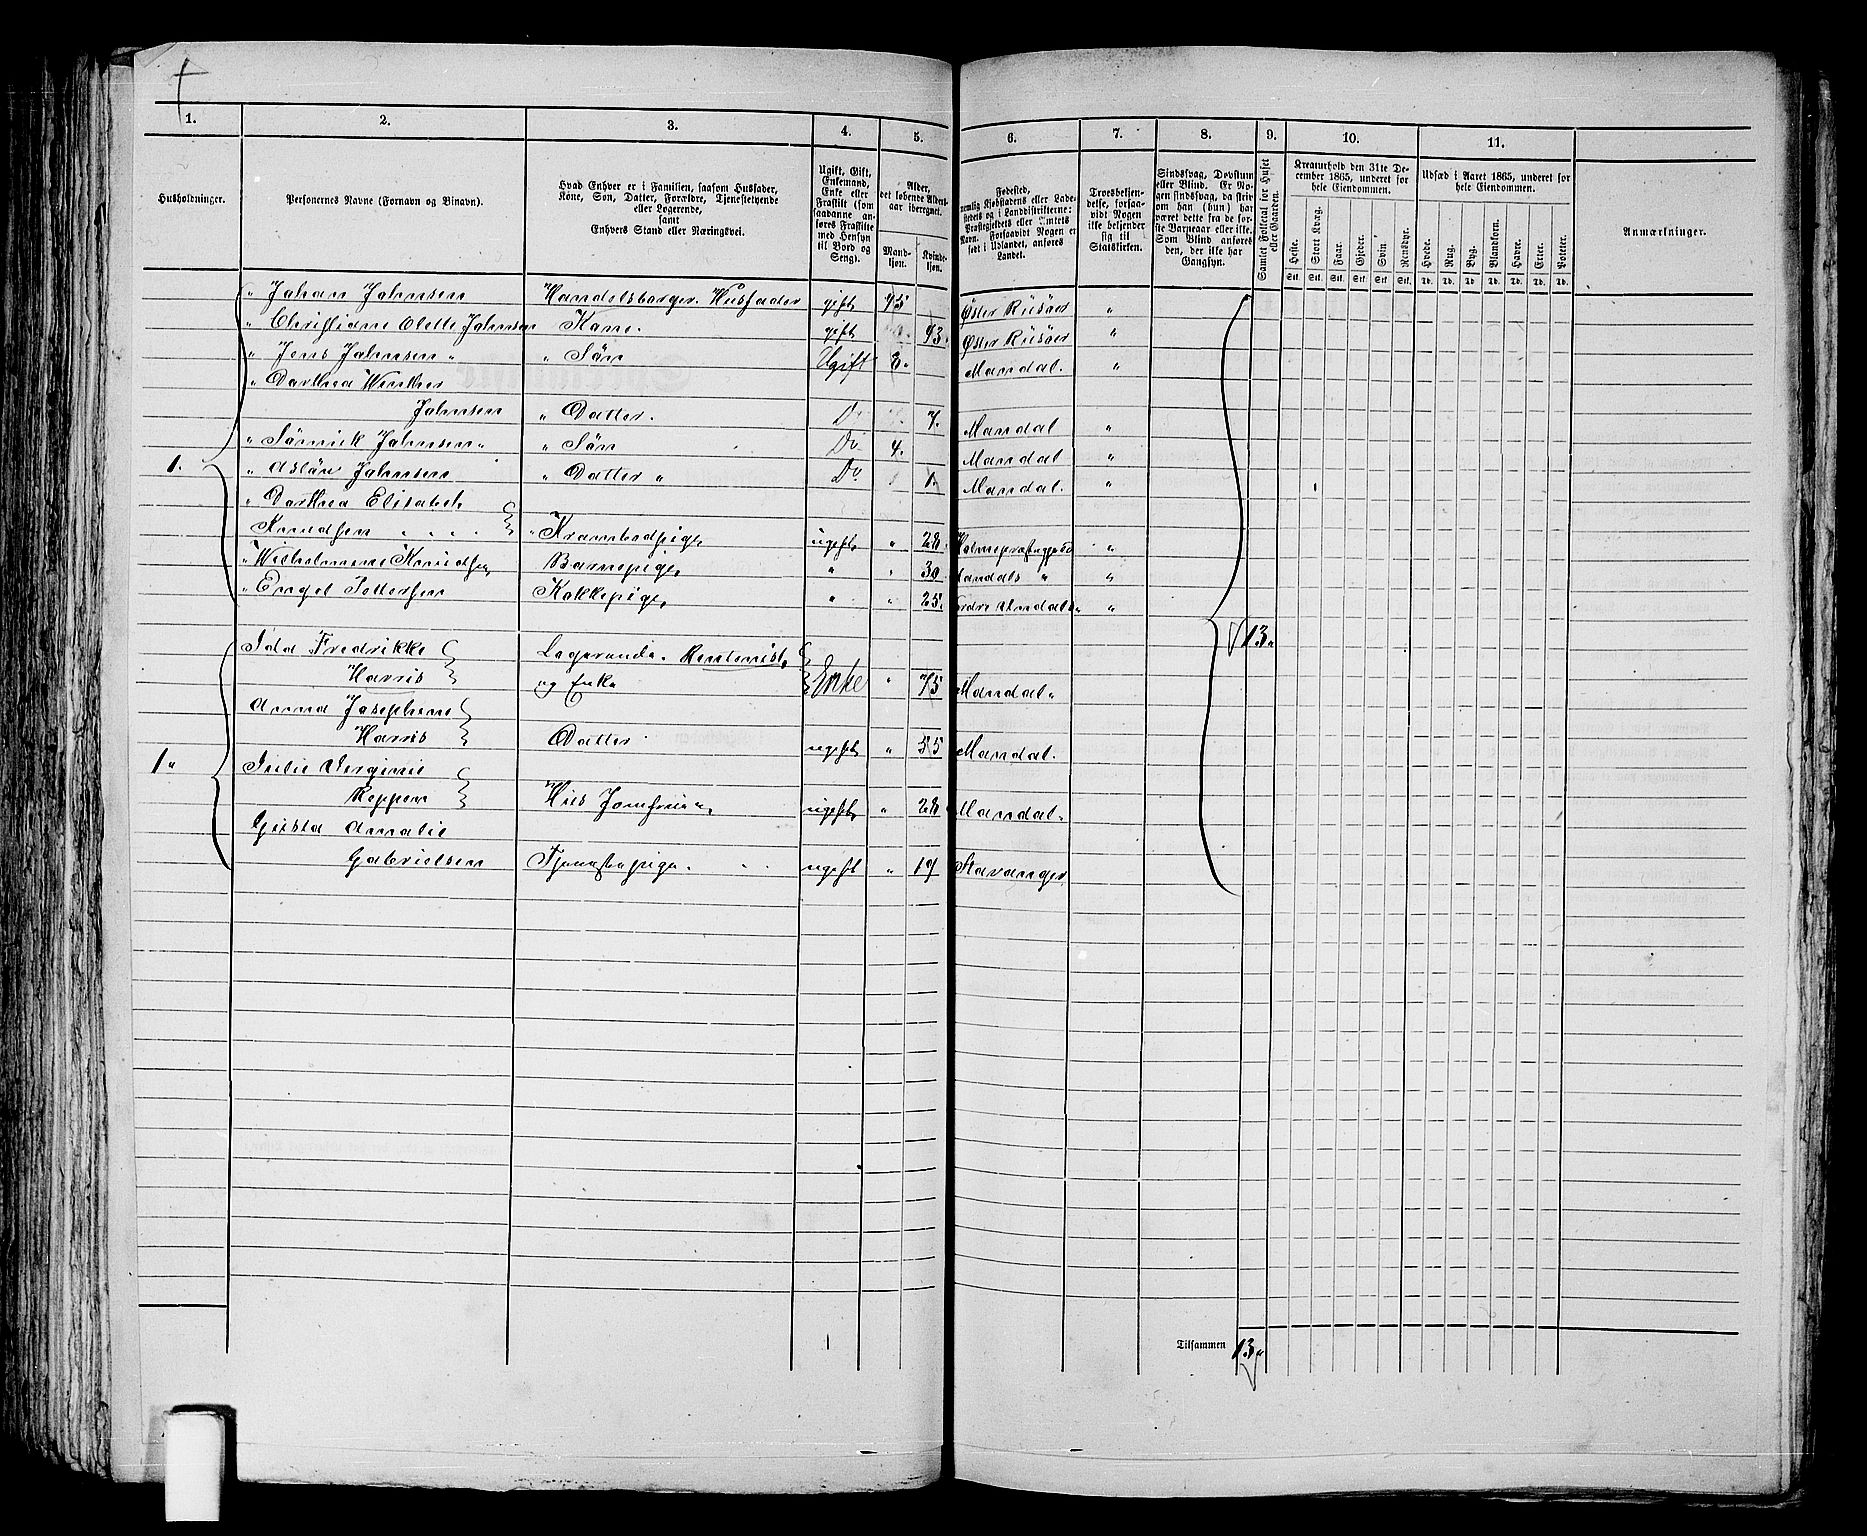 1. 2. 3. 4. 5. 6. 7. 8. 9. 10. 11.
Husholdninger.
Personernes Navne (Fornavn og Binavn).
Hvad Enhver er i Familien, saasom Husfader,
Kone, Søn, Datter, Forældre, Tjenestetyende
eller Logerende,
samt
Enhvers Stand eller Næringsvei.
Ugift, Gift,
Enkemand,
Enke eller
Fraskilt (som
saadanne an-
føres Fraskilte
med Hensyn
til Bord og
Seng).
Alder,
det løbende Alders-
aar iberegnet.
Mand-
kjøn.
Kvinde-
kjøn.
Fødested,
nemlig Kjøbstadens eller Lade-
stedets og i Landdistrikterne:
Præstegjeldets eller Amtets
Navn. Forsaavidt Nogen er
født i Udlandet, anføres
Landet.
Troesbekjen-
delse, forsaa-
vidt Nogen
ikke bekjender
sig til
Statskirken.
Sindssvag, Døvstum
eller Blind. Er No-
gen sindssvag, da skriv
om han (hun) har
været dette fra de før-
ste Barneaar eller ikke.
Som Blind anføres
den, der ikke har
Gangsyn.
Samlet Folketal for Huset
eller Gaarden.
Kreaturhold den 31te De-
cember 1865, underet for
hele Eiendommen.
Heste. Stort Kvæg. Faar. Gjeder. Sviin. Rensdyr.
Stk. Stk. Stk. Stk. Stk. Stk.
Udsæd i Aaret 1865, underet for
hele Eiendommen.
Hvede. Rug. Byg. Blandkorn. Havre. Erter. Poteter.
Td. Td. Td. Td. Td. Td. Td.
Anmærkninger.
" Johan Johnsen Handelsborger. Husfader gift 45 Øster Riisøer "
" Christiane Olette Johnsen Kone. gift 43. Øster Riisøer "
" Jens Johnsen " " Søn Ugift 8. Mandal. "
" Dorthea Winther
Johnsen " Datter. Do 7. Mandal "
" Sønnick Johnsen " " Søn Do 4. Mandal "
1. " Johnsen " Datter " Do 1. Mandal. "
" Dorthea Elisabeth
Knudsen . . . . " Krambodpige ugift " 28. "
" Wilhelmene Knudsen Barnepige " " 30 "
" Engel Pettersen Kokkepige " " 25. "
Ida Fredrikke Logerende. Rentenist 13.
Harris og Enke Enke " 75 Mandal "
Anna Josephine
Harris Datter ugift " 55 Mandal.
1" Julie Verginie
Reppen Huus Jomfrue " ugift " 28 Mandal.
Gusta Amalie
Gabrielsen Tjenestepige. ugift " 17 Stavanger
Tilsammen 13 "